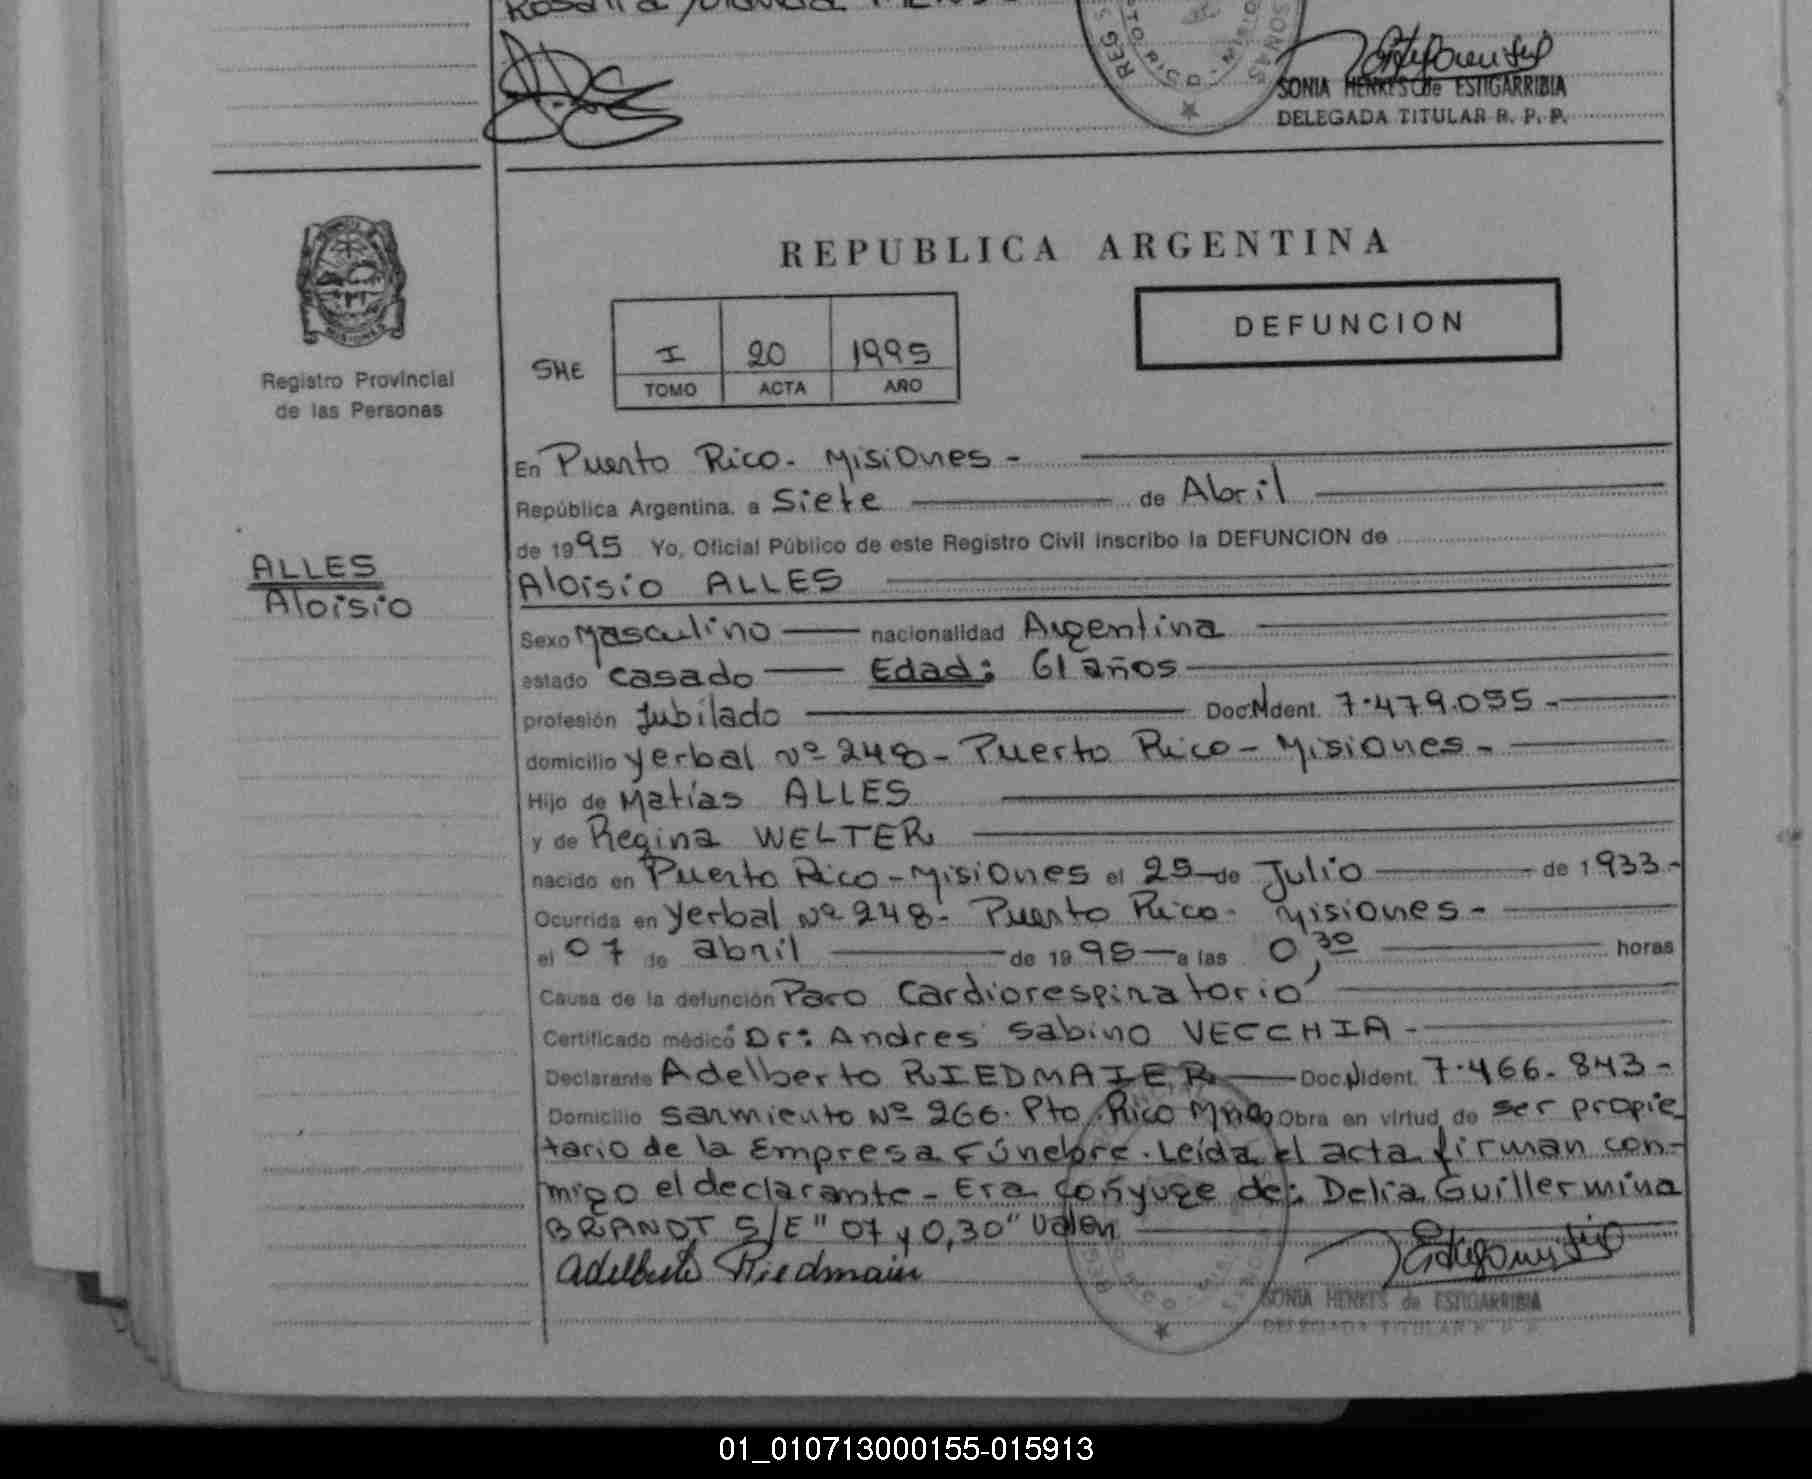 SONIA HENKES de ESTIGARRIBIA
DELEGADA TITULAR R. P. P.
MISIONES
Registro Provincial
de las Personas
REPUBLICA ARGENTINA
DEFUNCION
SHE
I 20 1995
TOMO ACTA AÑO
ALLES
Aloisio
En Puerto Rico - Misiones -
República Argentina, a Siete de Abril
de 1995 Yo, Oficial Público de este Registro Civil inscribo la DEFUNCION de
Aloisio ALLES
Sexo Masculino nacionalidad Argentina
estado casado Edad: 61 años
profesión Jubilado Doc. N Ident. 7.479.055 -
domicilio Yerbal Nº 248 - Puerto Rico - Misiones -
Hijo de Matías ALLES
y de Regina WELTER
nacido en Puerto Rico - Misiones el 25 de Julio de 1933 -
Ocurrida en Yerbal Nº 248 - Puerto Rico - Misiones -
el 07 de abril de 1995 a las 0,30 horas
Causa de la defunción Paro Cardiorespiratorio
Certificado médico Dr: Andres Sabino VECCHIA -
Declarante Adelberto RIEDMAIER Doc. N Ident. 7.466.843 -
Domicilio Sarmiento Nº 266. Pto. Rico Mnes Obra en virtud de ser propie
tario de la Empresa Fúnebre. Leída el acta firman con-
migo el declarante - Era conyuge de: Delia Guillermina
BRANDT S/E "07 y 0,30" Valen
Adelberto Riedmaier
SONIA HENKES de ESTIGARRIBIA
DELEGADA TITULAR R. P. P.
01_010713000155-015913